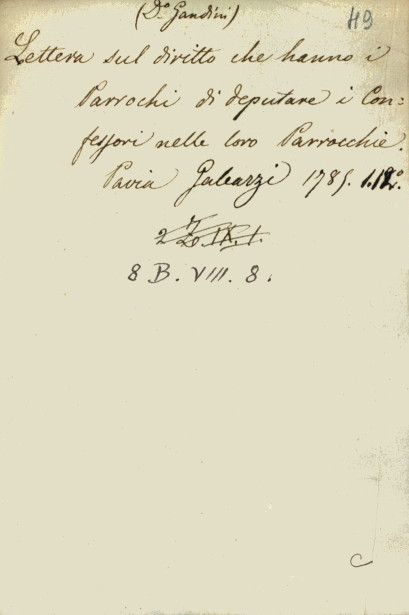 (D.º Gandini)
49
Lettera sul diritto che hanno i
Parrochi di deputare i Con=
fessori nelle loro Parrocchie.
Pavia Galeazzi 1785. 1.12º
8 B. VIII. 8.
C